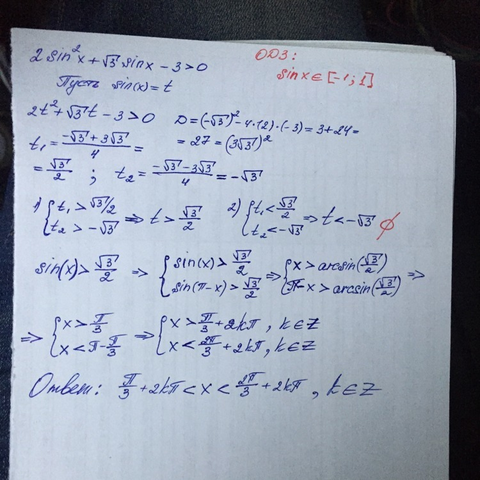 2 sin²x + √3 sinx − 3 > 0
ОДЗ:
sinx ∈ [-1; 1]
Пусть sin(x) = t
2t² + √3 t − 3 > 0 D = (−√3)² − 4·(2)·(−3) = 3 + 24 =
= 27 = (3√3)²
t₁ = (−√3 + 3√3)/4 =
= √3/2 ; t₂ = (−√3 − 3√3)/4 = −√3
1) { t₁ > √3/2 ; t₂ > −√3 ⇒ t > √3/2 2) { t₁ < √3/2 ; t₂ < −√3 ⇒ t < −√3 ∅
sin(x) > √3/2 ⇒ { sin(x) > √3/2 ; sin(π−x) > √3/2 ⇒ { x > arcsin(√3/2) ; π−x > arcsin(√3/2) ⇒
⇒ { x > π/3 ; x < π − π/3 ⇒ { x > π/3 + 2kπ, k ∈ Z ; x < 2π/3 + 2kπ, k ∈ Z
Ответ: π/3 + 2kπ < x < 2π/3 + 2kπ , k ∈ Z